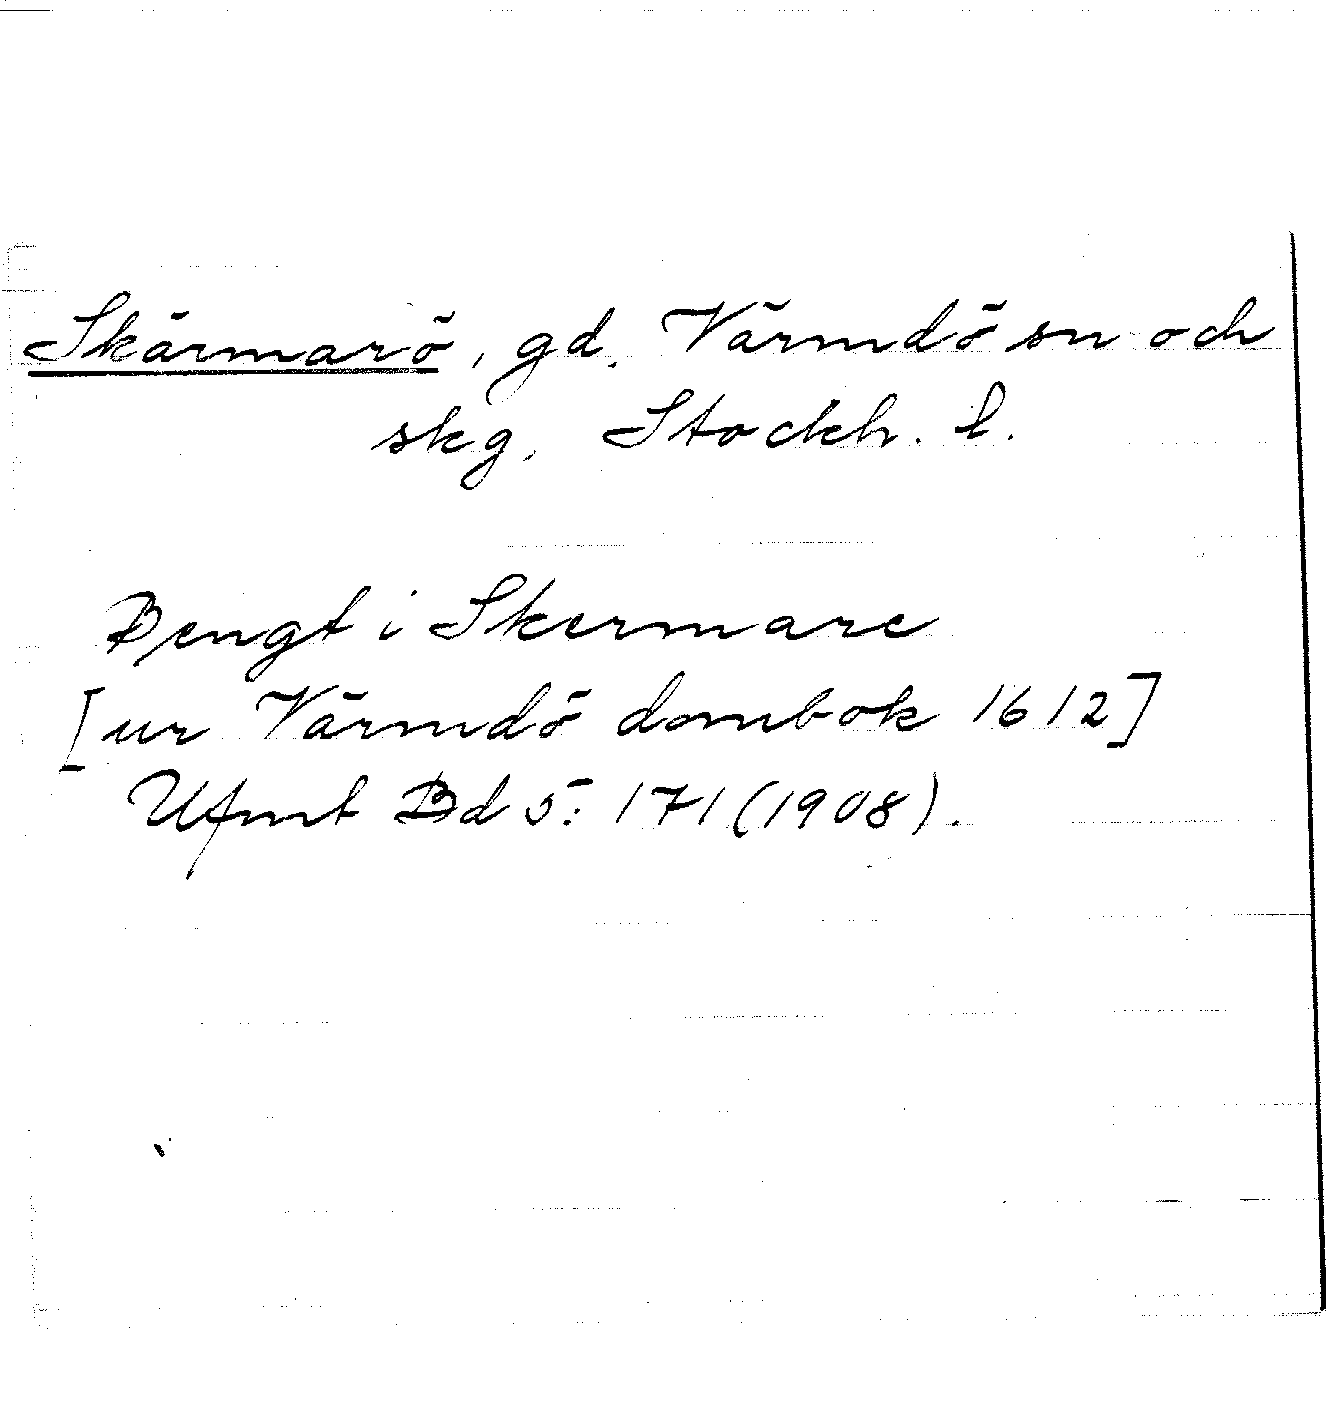 Skärmarö, gd, Värmdö sn och
skg, Stockh. l.
Bengt i Skermare
[ur Värmdö dombok 1612]
Ufmt Bd 5: 171 (1908).